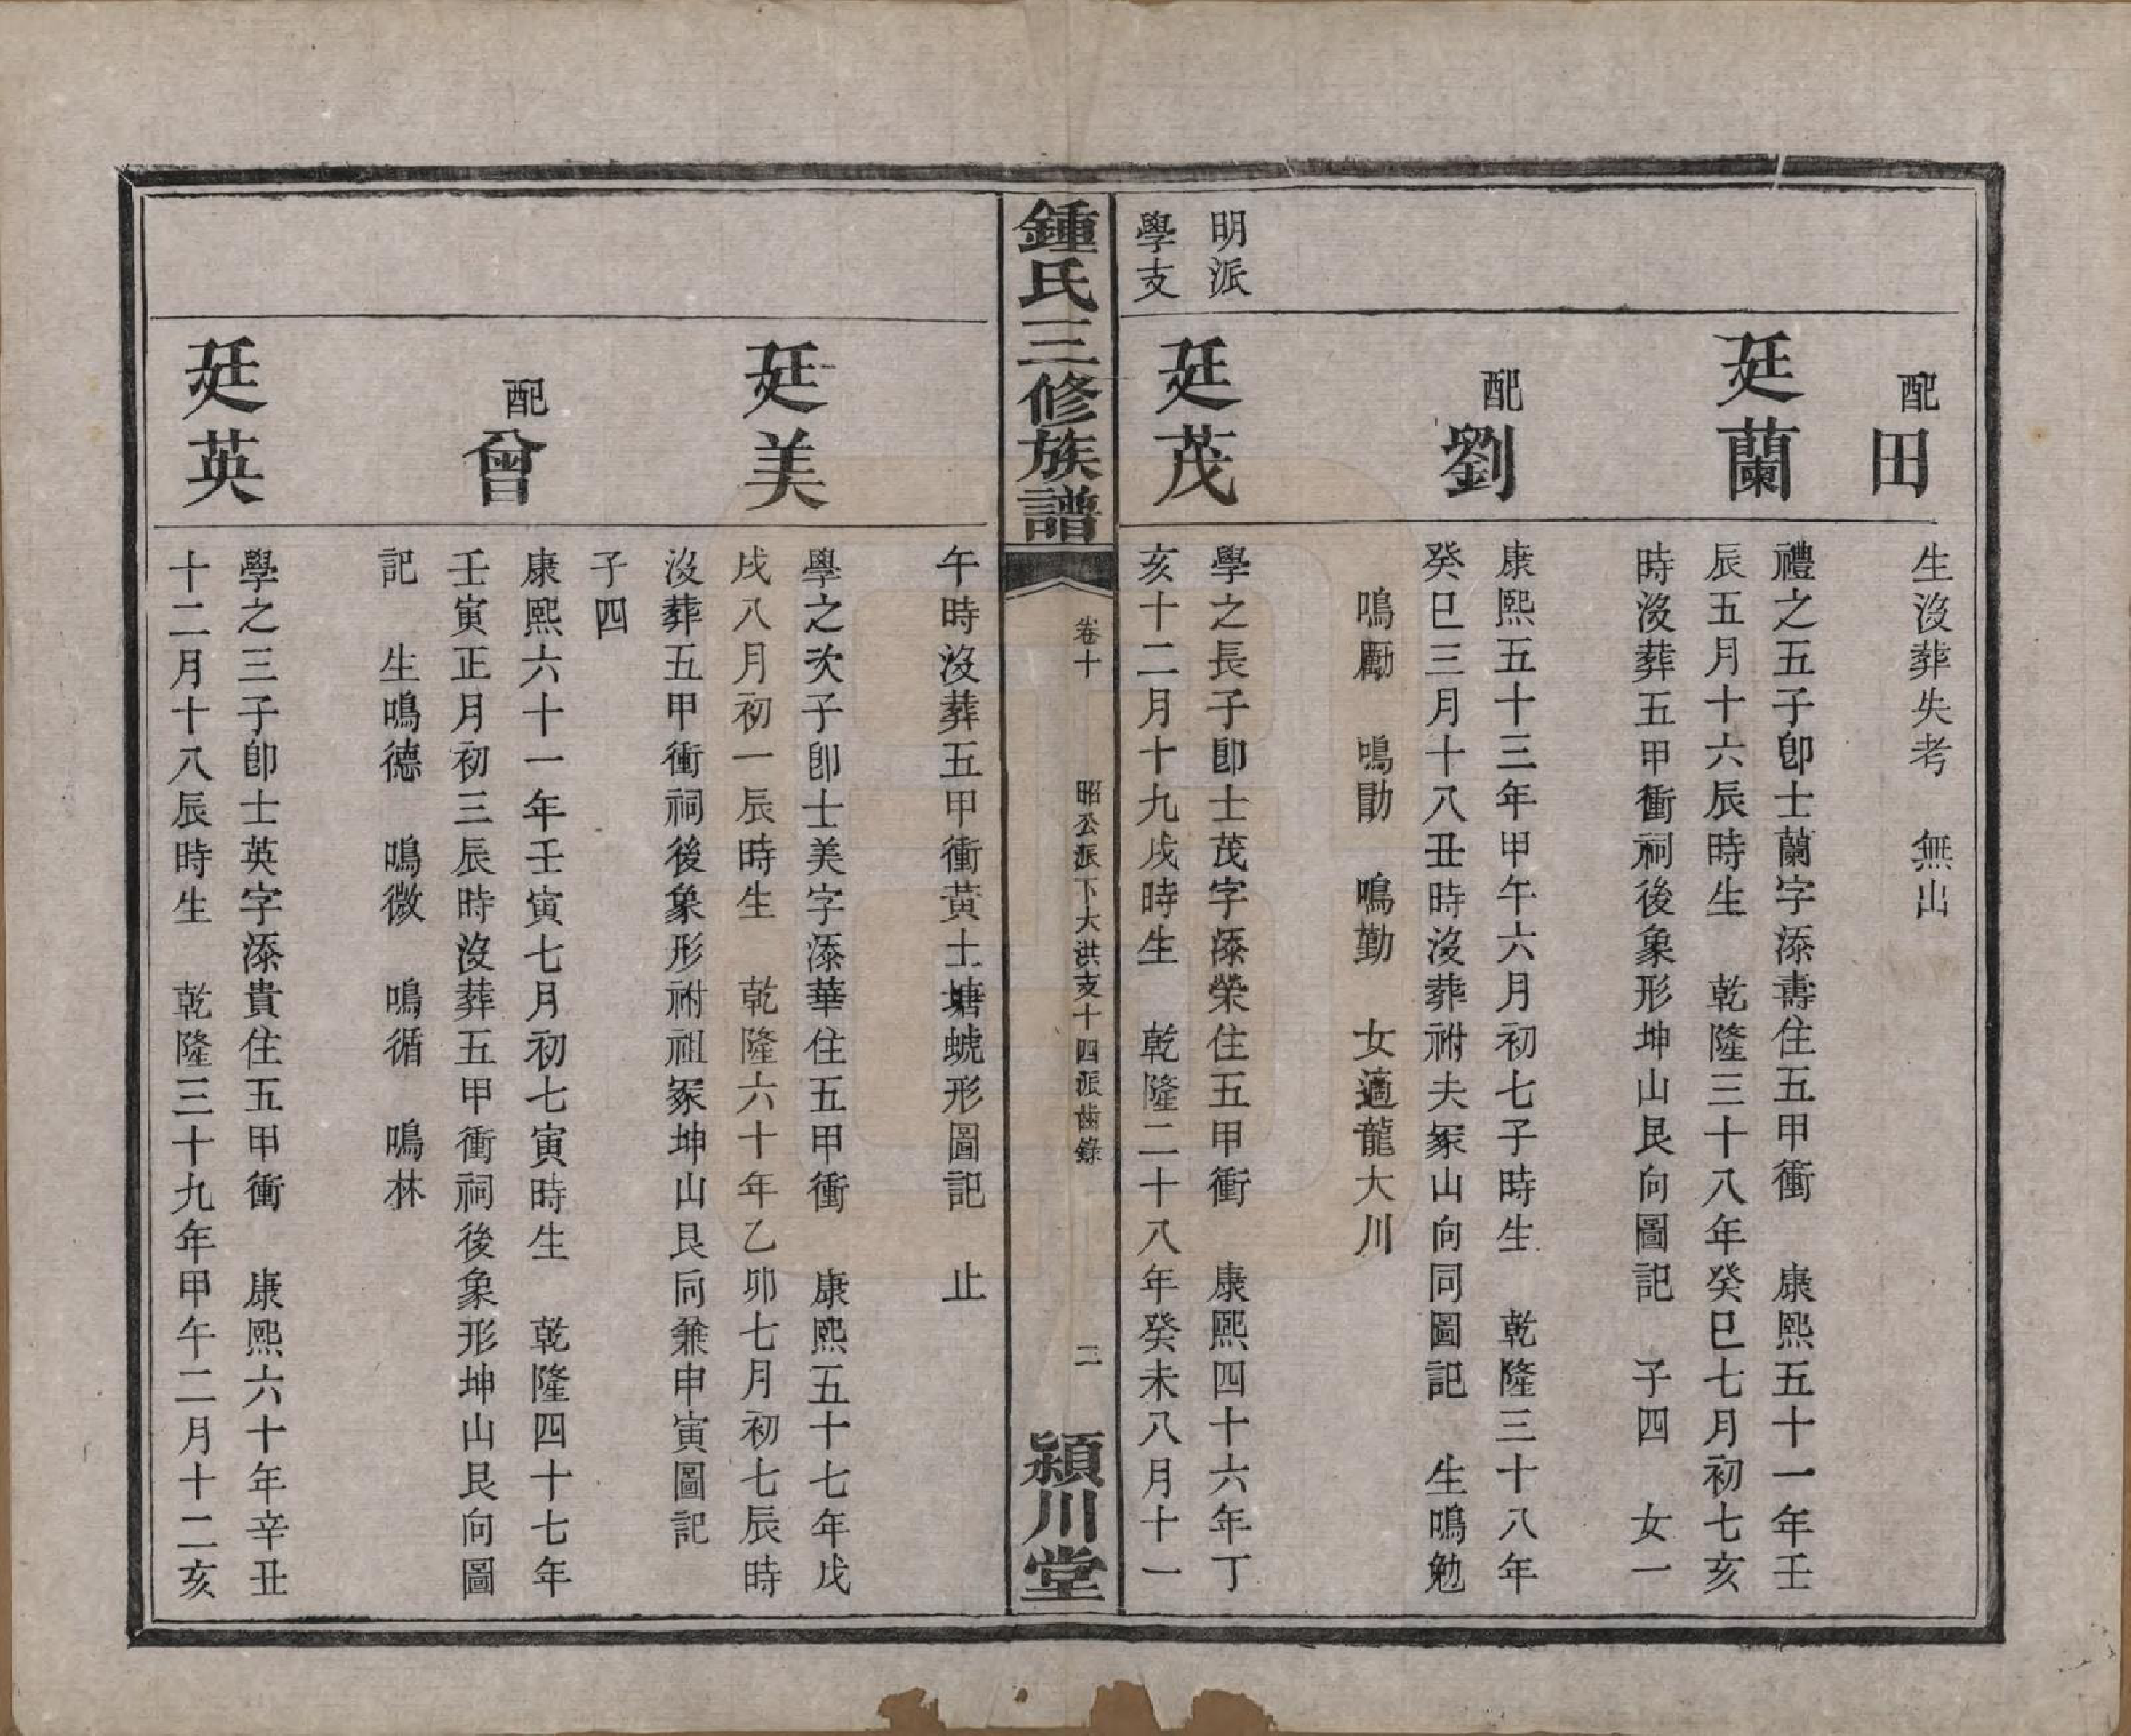 配田
生沒葬失考　無出
廷蘭
禮之五子卽士蘭字添壽住五甲衝　康熙五十一年壬
辰五月十六辰時生　乾隆三十八年癸巳七月初七亥
時沒葬五甲衝祠後象形坤山艮向圖記　子四　女一
配劉
康熙五十三年甲午六月初七子時生　乾隆三十八年
癸巳三月十八丑時沒葬祔夫冢山向同圖記　生鳴勉
鳴勵　鳴勛　鳴勤　女適龍大川
明派
學支
廷茂
學之長子卽士茂字添榮住五甲衝　康熙四十六年丁
亥十二月十九戌時生　乾隆二十八年癸未八月十一
鍾氏三修族譜
卷十
昭公派下大洪支十四派齒錄
二
潁川堂
午時沒葬五甲衝黃土塘螔形圖記　止
廷美
學之次子卽士美字添華住五甲衝　康熙五十七年戊
戌八月初一辰時生　乾隆六十年乙卯七月初七辰時
沒葬五甲衝祠後象形祔祖冢坤山艮向兼申寅圖記
子四
配曾
康熙六十一年壬寅七月初七寅時生　乾隆四十七年
壬寅正月初三辰時沒葬五甲衝祠後象形坤山艮向圖
記　生鳴德　鳴微　鳴循　鳴林
廷英
學之三子卽士英字添貴住五甲衝　康熙六十年辛丑
十二月十八辰時生　乾隆三十九年甲午二月十二亥